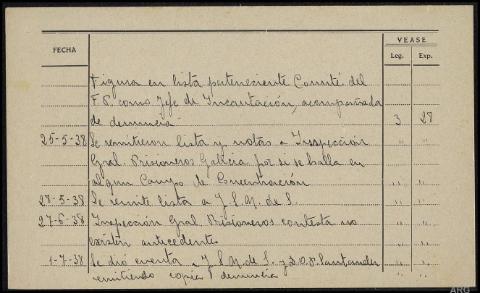 VEASE
FECHA Leg. Exp.
Figura en lista perteneciente Comité del
F.P. como Jefe de Incautación, acompañada
de denuncia 3 28
25-5-38 Se remitieron lista y notas a Inspección
Gral. Prisioneros Galicia por si se halla en
algún Campo de Concentración " "
28-5-38 Se remite lista a J.S.M. de S. " "
27-6-38 Inspección Gral. Prisioneros contesta no
existen antecedentes " "
1-7-38 Se dió cuenta a J.S.M. de S. y D.O.P. Santander
remitiendo copia denuncia " "
ARG